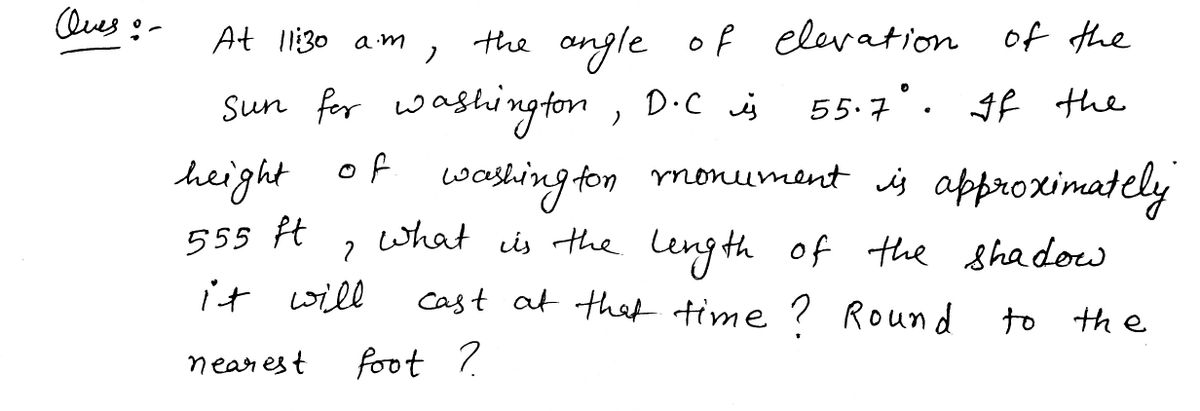 Ques :- At 11:30 a.m , the angle of elevation of the
sun for washington , D.C is 55.7°. If the
height of washington monument is approximately
555 ft , what is the length of the shadow
it will cast at that time ? Round to the
nearest foot ?